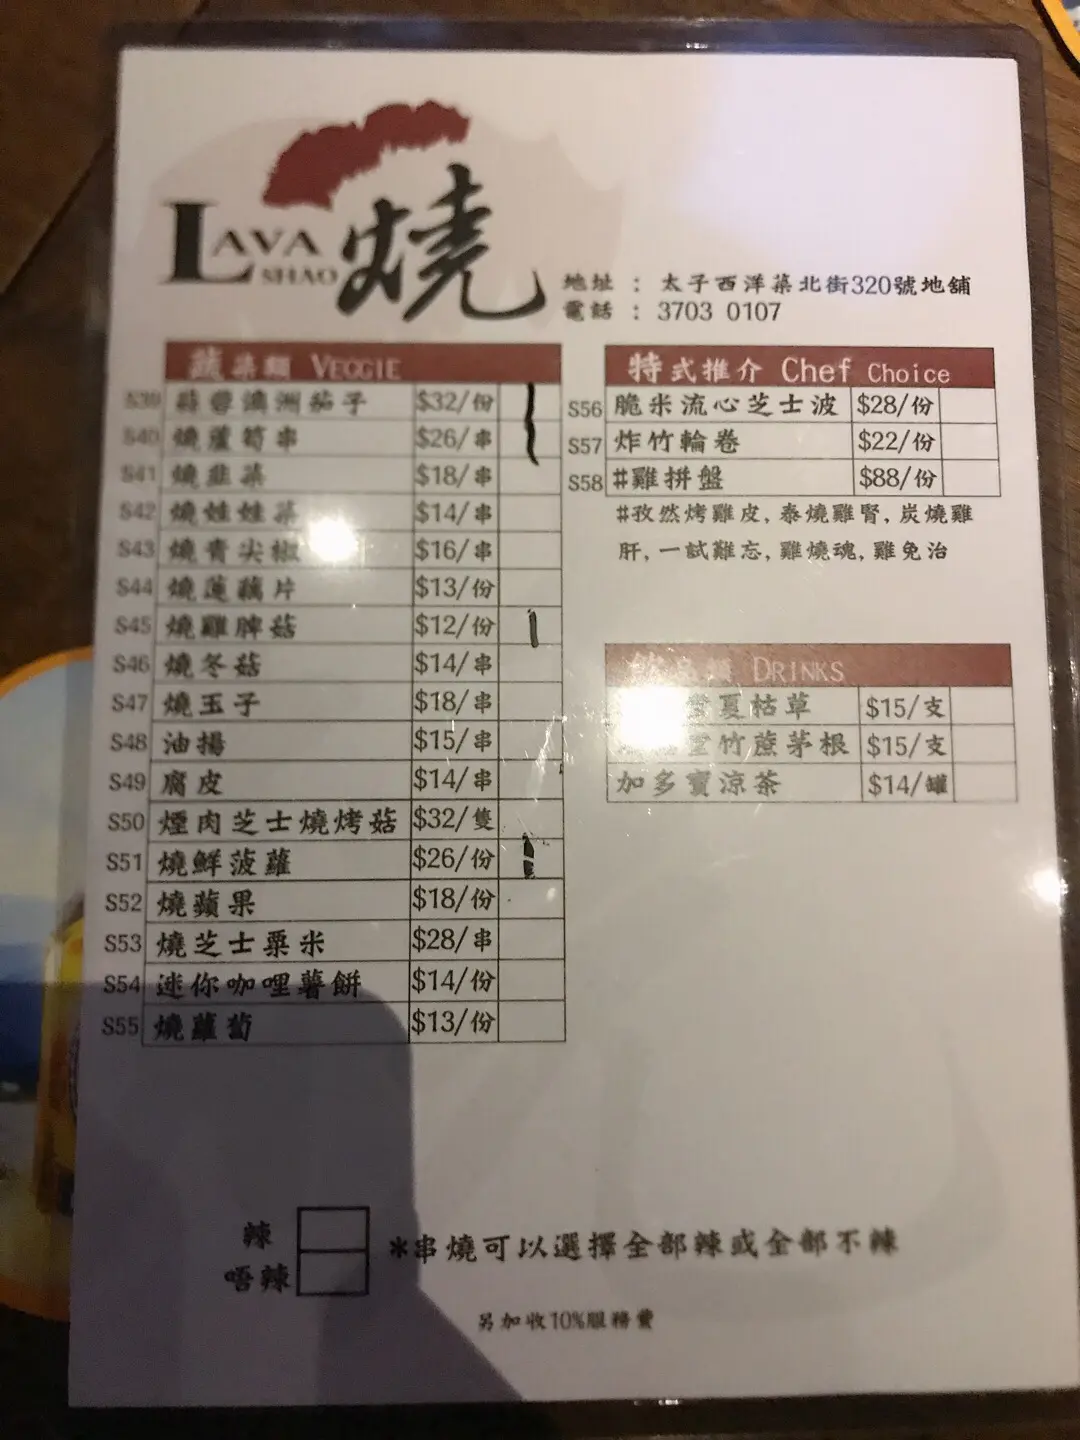 LAVA
SHAO 燒
地址 : 太子西洋菜北街320號地舖
電話 : 3703 0107
蔬菜類 VEGGIE
S39 蒜蓉澳洲茄子 $32/份
S40 燒蘆筍串 $26/串
S41 燒韭菜 $18/串
S42 燒娃娃菜 $14/串
S43 燒青尖椒 $16/串
S44 燒蓮藕片 $13/份
S45 燒雞脾菇 $12/份
S46 燒冬菇 $14/串
S47 燒玉子 $18/串
S48 油揚 $15/串
S49 腐皮 $14/串
S50 煙肉芝士燒烤菇 $32/隻
S51 燒鮮菠蘿 $26/份
S52 燒蘋果 $18/份
S53 燒芝士粟米 $28/串
S54 迷你咖哩薯餅 $14/份
S55 燒蘿蔔 $13/份
特式推介 Chef Choice
S56 脆米流心芝士波 $28/份
S57 炸竹輪卷 $22/份
S58 #雞拼盤 $88/份
#孜然烤雞皮, 泰燒雞腎, 炭燒雞
肝, 一試難忘, 雞燒魂, 雞免治
飲品類 DRINKS
堂夏枯草 $15/支
堂竹蔗茅根 $15/支
加多寶涼茶 $14/罐
辣
唔辣
*串燒可以選擇全部辣或全部不辣
另加收10%服務費